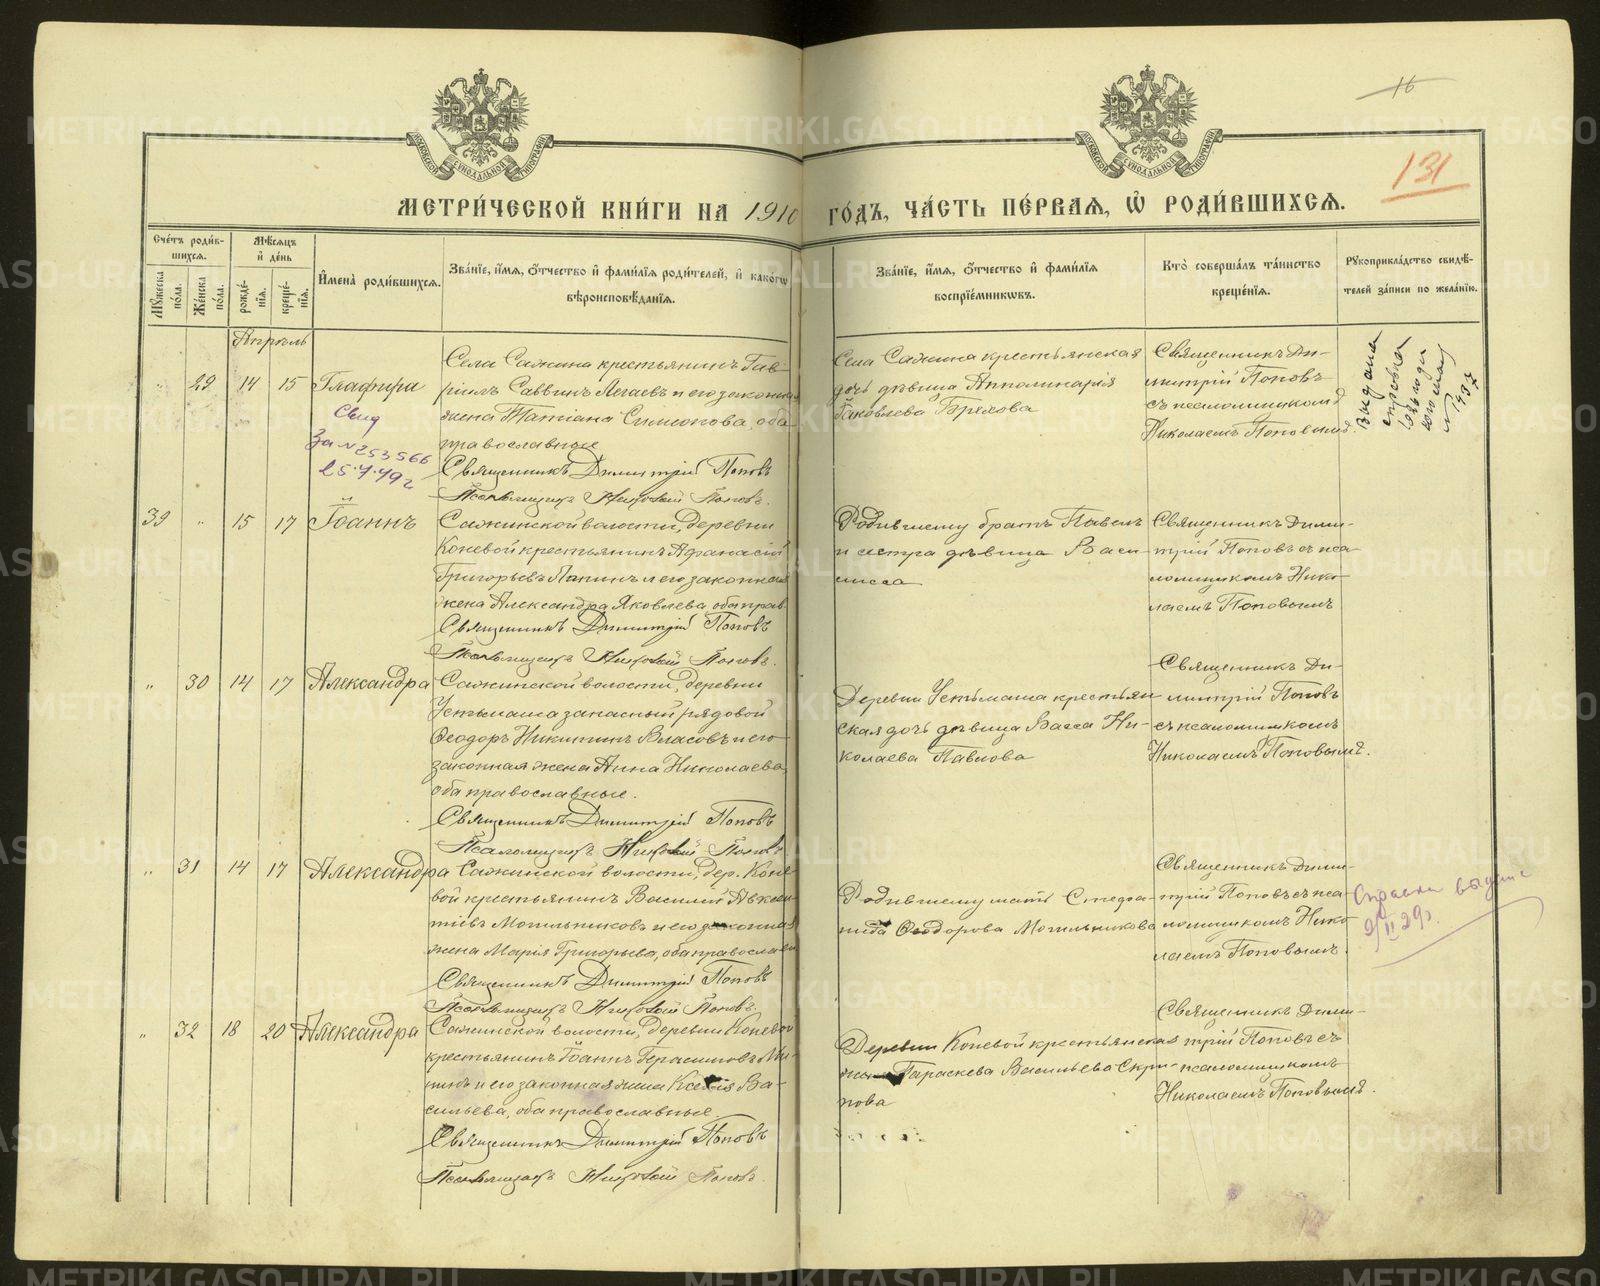 16
131
МЕТРИ́ЧЕСКОЙ КНИ́ГИ НА 1910 ГО́ДЪ, ЧА́СТЬ ПЕ́РВАЯ, Ѡ҆ РОДИ́ВШИХСѦ.
Сче́тъ роди́в-
шихсѧ.
Мꙋ́жеска по́ла.
Же́нска по́ла.
Мѣ́сѧцъ
и҆ де́нь
рожде́-
нїѧ.
креще́-
нїѧ.
И҆мена̀ роди́вшихсѧ.
Зва́нїе, и҆́мѧ, ѻ҆́тчество и҆ фами́лїѧ роди́телей, и҆ како́гѡ
вѣроисповѣ́данїѧ.
Зва́нїе, и҆́мѧ, ѻ҆́тчество и҆ фами́лїѧ
воспрїе́мникѡвъ.
Кто̀ соверша́лъ та́инство
креще́нїѧ.
Рꙋкоприкла́дство свидѣ́-
телей за́писи по жела́нїю.
Апрѣль
" 29 14 15 Глафира
Села Сажина крестьянинъ Гав-
ріилъ Саввинъ и его законная
жена Татіана Симонова, оба
православные
Священникъ Димитрій Поповъ
Псаломщикъ Николай Поповъ.
Села Сажина крестьянская
дочь дѣвица Апполинарія
Іаковлева Брехова
Священникъ Ди-
митрій Поповъ
съ псаломщикомъ
Николаемъ Поповымъ.
Выдана
справка
Свид
За № 253566
25.7.49 г
39 " 15 17 Іоаннъ
Сажинской волости, деревни
Коневой крестьянинъ Афанасій
Григорьевъ Лапинъ и его законная
жена Александра Яковлева, оба прав.
Священникъ Димитрій Поповъ
Псаломщикъ Николай Поповъ.
Родившему братъ Павелъ
и сестра дѣвица Васи-
лисса
Священникъ Дими-
трій Поповъ съ пса-
ломщикомъ Нико-
лаемъ Поповымъ
" 30 14 17 Александра
Сажинской волости, деревни
Устьмаша запасный рядовой
Ѳеодоръ Никитинъ Власовъ и его
законная жена Анна Николаева,
оба православные.
Священникъ Димитрій Поповъ
Псаломщикъ Николай Поповъ
Деревни Устьмаша крестьян
ская дочь дѣвица Васса Ни-
колаева Павлова
Священникъ Ди-
митрій Поповъ
съ псаломщикомъ
Николаемъ Поповымъ.
" 31 14 17 Александра
Сажинской волости, дер. Коне-
вой крестьянинъ Василій Авксен-
тіевъ Мотыльниковъ и его законная
жена Марія Григорьева, оба православн.
Священникъ Димитрій Поповъ
Псаломщикъ Николай Поповъ.
Родившему мать Стефа-
нида Ѳеодорова Мотыльникова
Священникъ Дими-
трій Поповъ съ пса-
ломщикомъ Нико-
лаемъ Поповымъ.
Справка выдана
9/II 29 г.
" 32 18 20 Александра
Сажинской волости, деревни Коневой
крестьянинъ Іоаннъ Герасимовъ
и его законная жена Ксенія Ва-
сильева, оба православные.
Священникъ Димитрій Поповъ
Псаломщикъ Николай Поповъ.
Деревни Коневой крестьянская
жена Параскева Васильева Скри-
пова
Священникъ Дими-
трій Поповъ съ
псаломщикомъ
Николаемъ Поповымъ.
METRIKI.GASO-URAL.RU